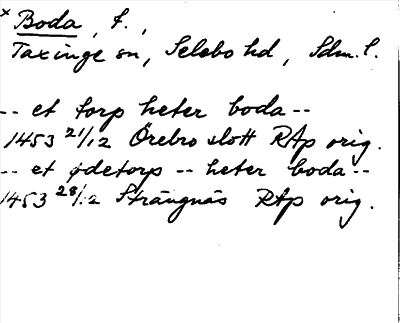 x Boda, f.,
Taxinge sn, Selebo hd, Sdm. l.
-- et torp heter boda --
1453 21/12 Örebro slott RAp orig.
-- et ødetorp -- heter boda --
1453 28/12 Strängnäs RAp orig.